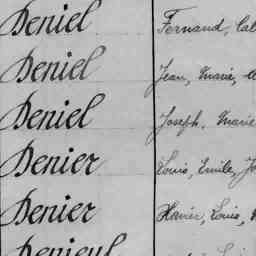 Deniel Fernand,
Deniel Jean, Marie,
Deniel Joseph, Marie
Denier Louis, Emile,
Denier Xavier, Louis,
Denieul